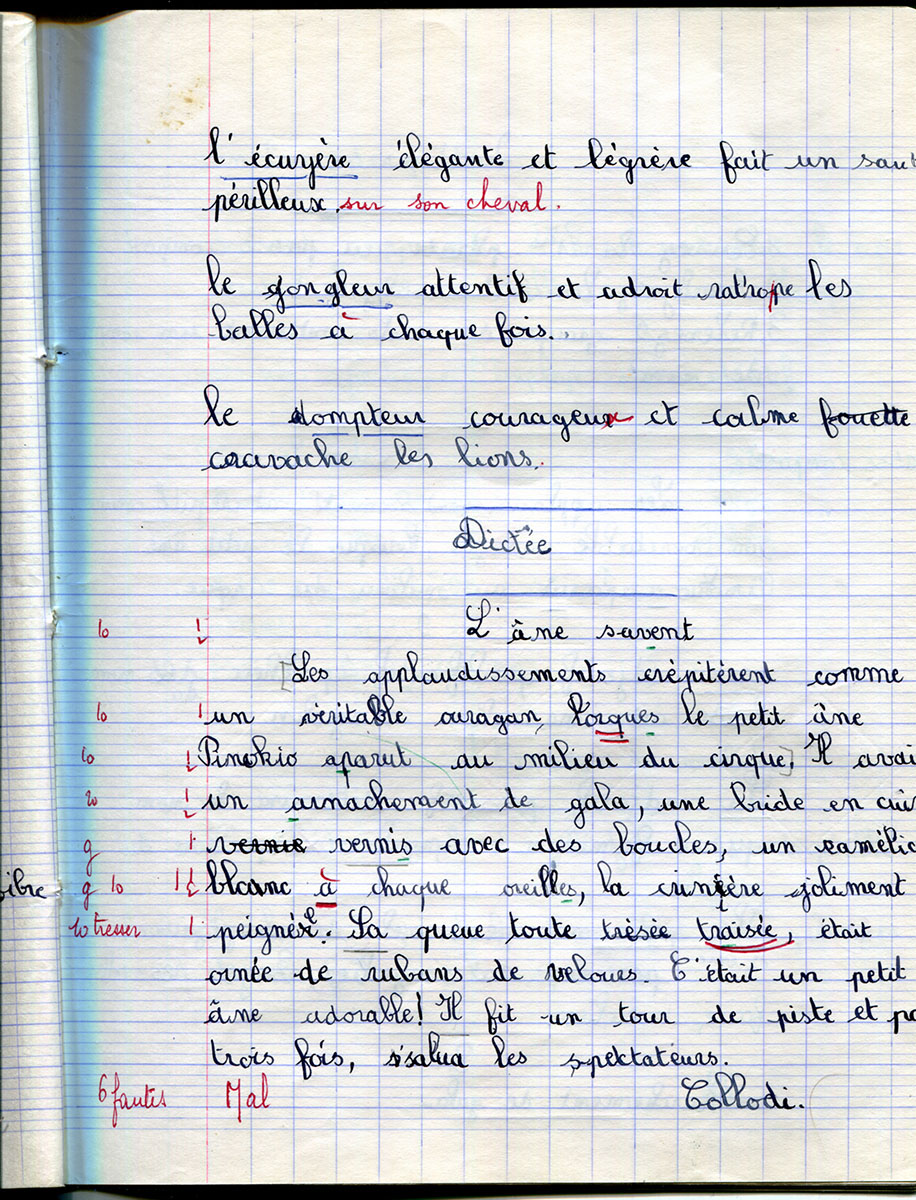 l'écuyère élégante et légrère fait un saut
périlleux. sur son cheval.
le jongleur attentif et adroit ratrope les
balles à chaque fois.
le dompteur courageux et calme fouette
cravache les lions.
Dictée
lo ! L'âne savent
[Les applaudissements crépitèrent comme
lo ! un véritable ouragan, lorques le petit âne
lo ! Pinokio aparut au milieu du cirque] Il avai
lo ! un arnachement de gala, une bride en cuir
g ! vernie vernis avec des boucles, un camélia
g lo !! blanc à chaque oreilles, la crinière joliment
lo tresser ! peignée. Sa queue toute trèsée traisée, était
ornée de rubans de veloues. C'était un petit
âne adorable! Il fit un tour de piste et pa
trois fois, salua les spectateurs.
6 fautes Mal Collodi.